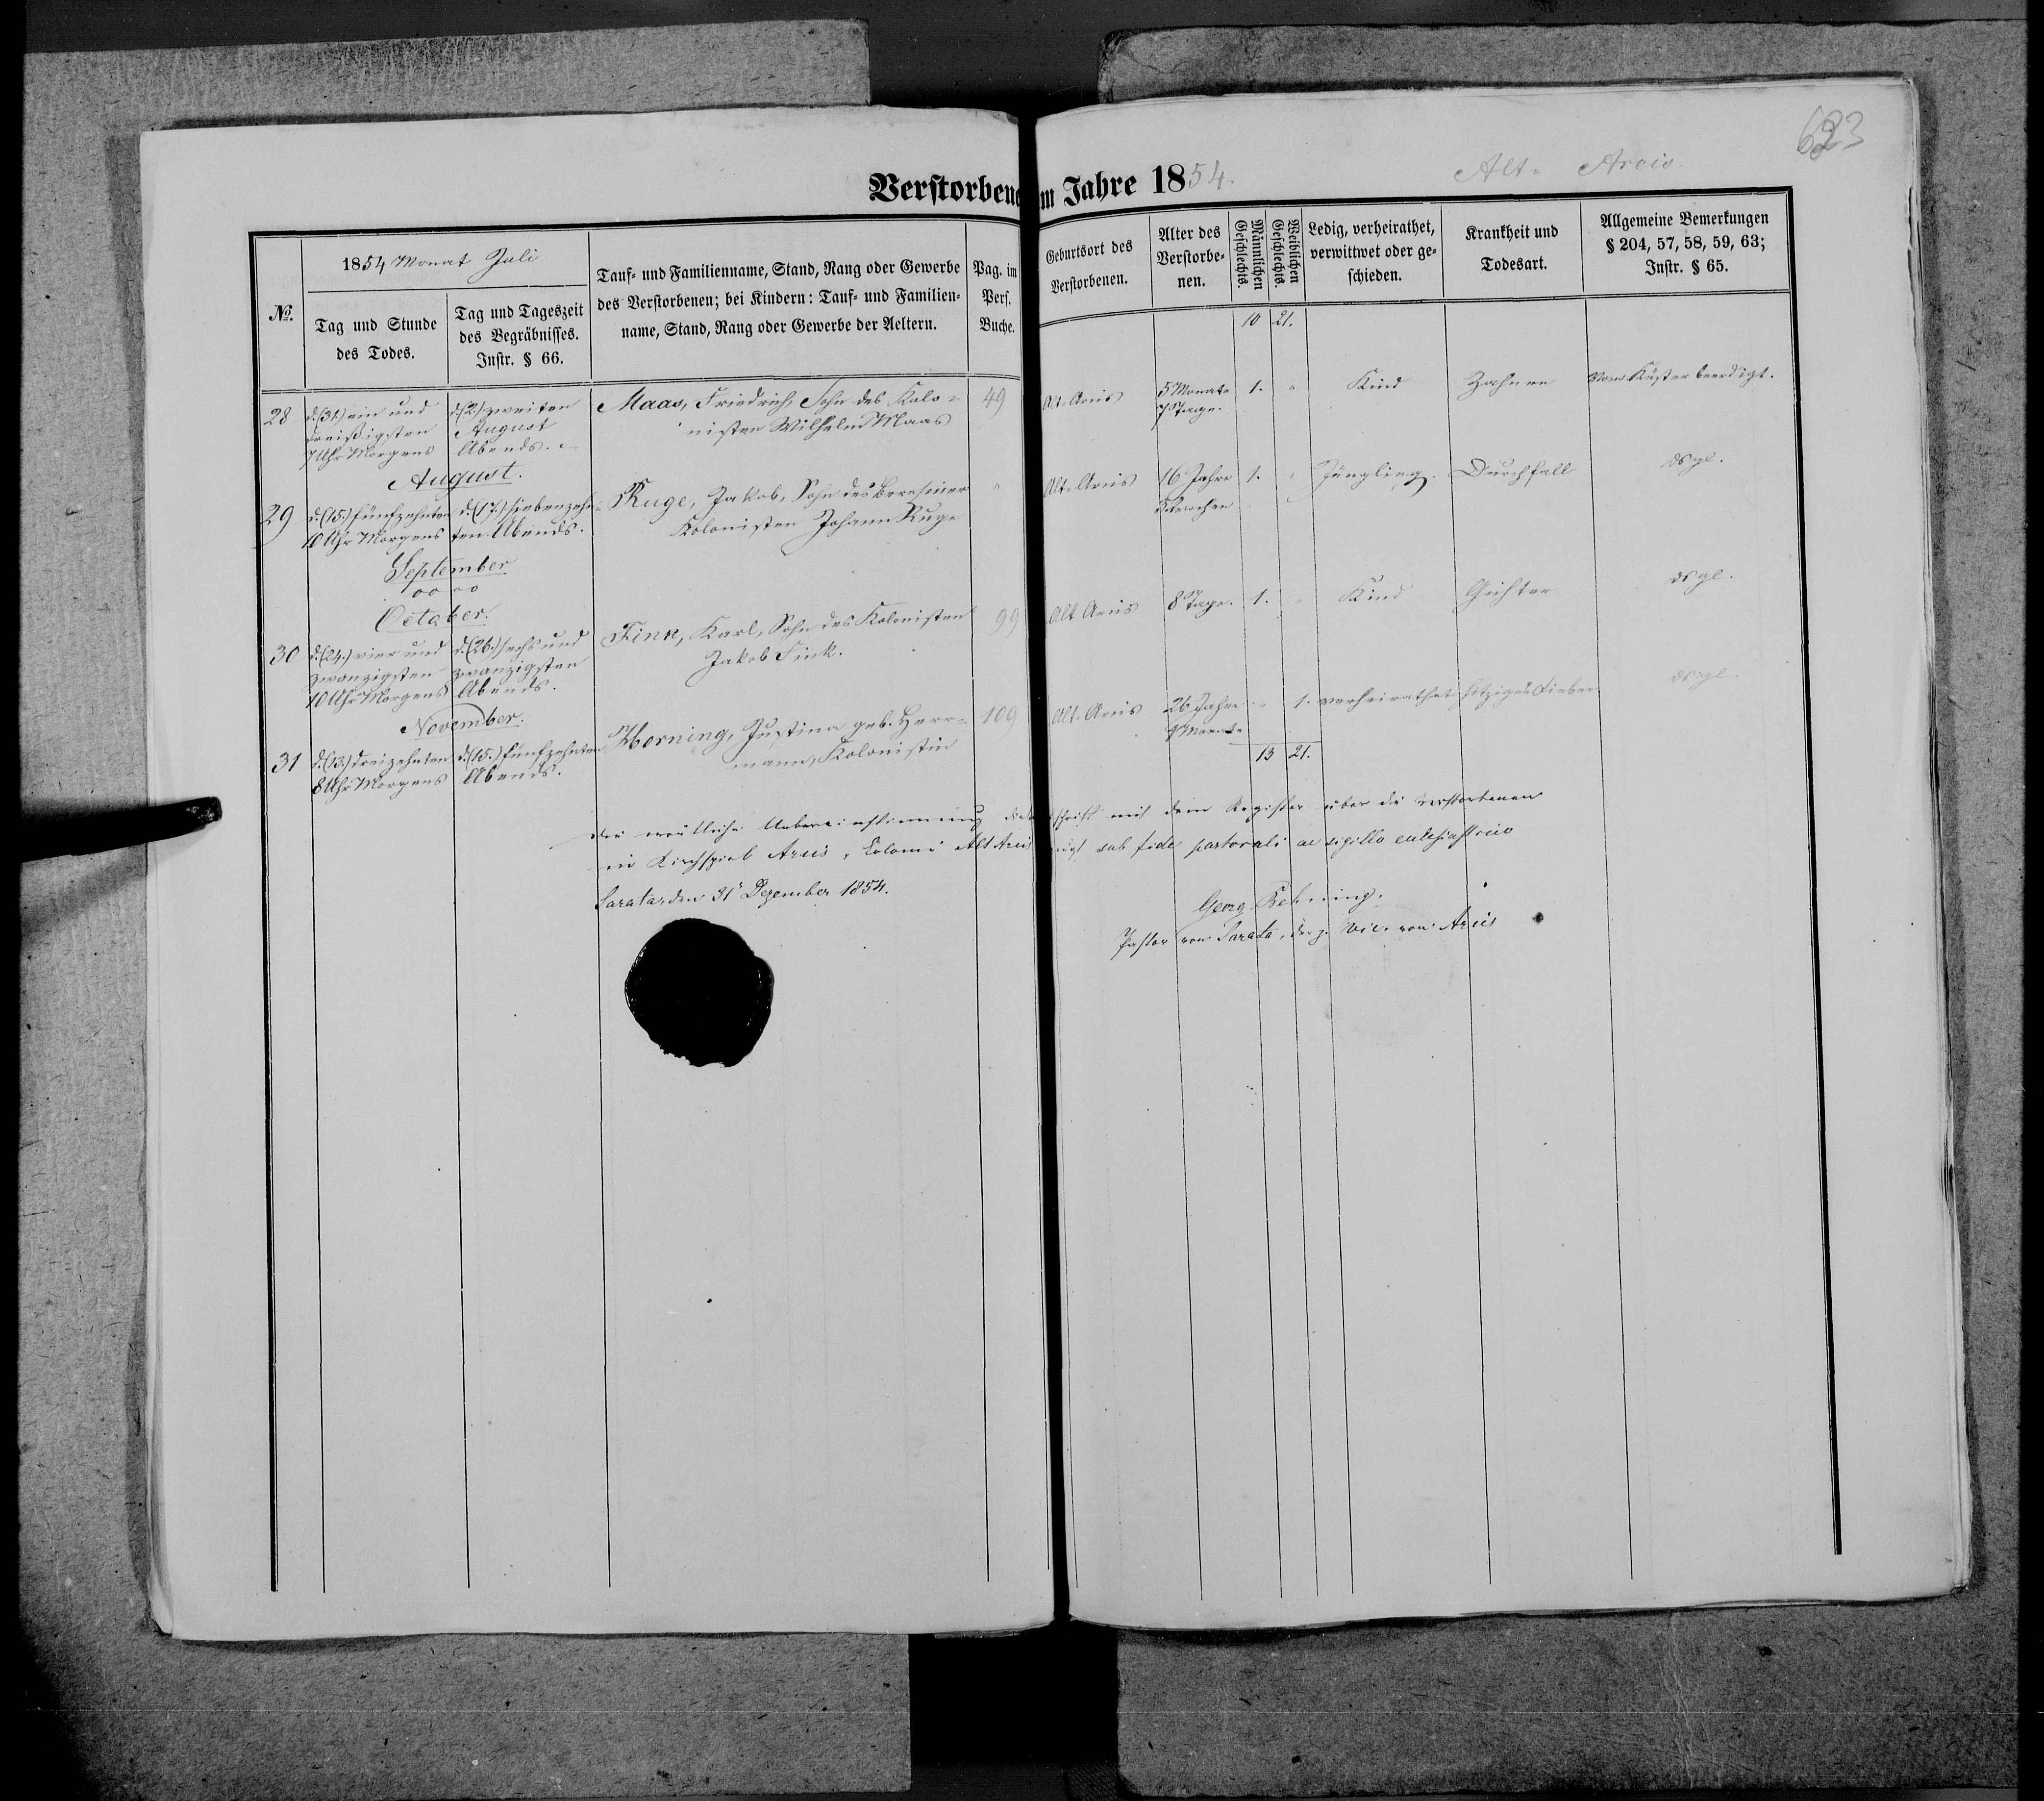 623
Alt- Arcis.
Verstorbene im Jahre 1854.
№.
1854 Monat Juli
Tag und Stunde
des Todes.
Tag und Tageszeit
des Begräbnisses.
Instr. § 66.
Tauf- und Familienname, Stand, Rang oder Gewerbe
des Verstorbenen; bei Kindern: Tauf- und Familien-
name, Stand, Rang oder Gewerbe der Aeltern.
Pag. im
Pers.
Buche.
Geburtsort des
Verstorbenen.
Alter des
Verstorbe-
nen.
Männlichen
Geschlechts.
Weiblichen
Geschlechts.
Ledig, verheirathet,
verwittwet oder ge-
schieden.
Krankheit und
Todesart.
Allgemeine Bemerkungen
§ 204, 57, 58, 59, 63;
Instr. § 65.
10 21.
28
d. (31.) ein und
dreißigsten
7 Uhr Morgens
d. (2.) zweiten
August
Abends.
Maas, Friedrich, Sohn des Kolo-
nisten Wilhelm Maas
49
Alt-Arcis
5 Monate
7 Tage.
1. "
Kind
Zahnen
Vom Küster beerdigt.
August.
29
d. (15.) fünfzehnten
10 Uhr Morgens
d. (17.) siebenzehn-
ten Abends.
Ruge, Jakob, Sohn des Beresiner
Kolonisten Johann Ruge
"
Alt-Arcis
16 Jahre
Wochen
1. "
Jüngling.
Durchfall
dsgl.
September
oo oo
October.
30
d. (24.) vier und
zwanzigsten
10 Uhr Morgens
d. (26.) sechs und
zwanzigsten
Abends.
Fink, Karl, Sohn des Kolonisten
Jakob Fink.
99
Alt Arcis
8 Tage.
1. "
Kind
Gichter
dsgl.
November.
31
d. (13.) dreizehnten
8 Uhr Morgens
d. (15.) fünfzehnten
Abends.
Horning, Justina geb. Herr-
mann, Kolonistin
109
Alt-Arcis
26 Jahre
Monate
" 1.
verheirathet
hitziges Fieber
dsgl.
13 21.
Die wörtliche Uebereinstimmung schrift mit dem Register über die Verstorbenen
im Kirchspiel Arcis, Colonie Alt Arcis sub fide pastorali ac sigillo eclesiastico
Sarata, den 31 Dezember 1854.
Georg
Pastor von Sarata, d. z. Vic. von Arcis